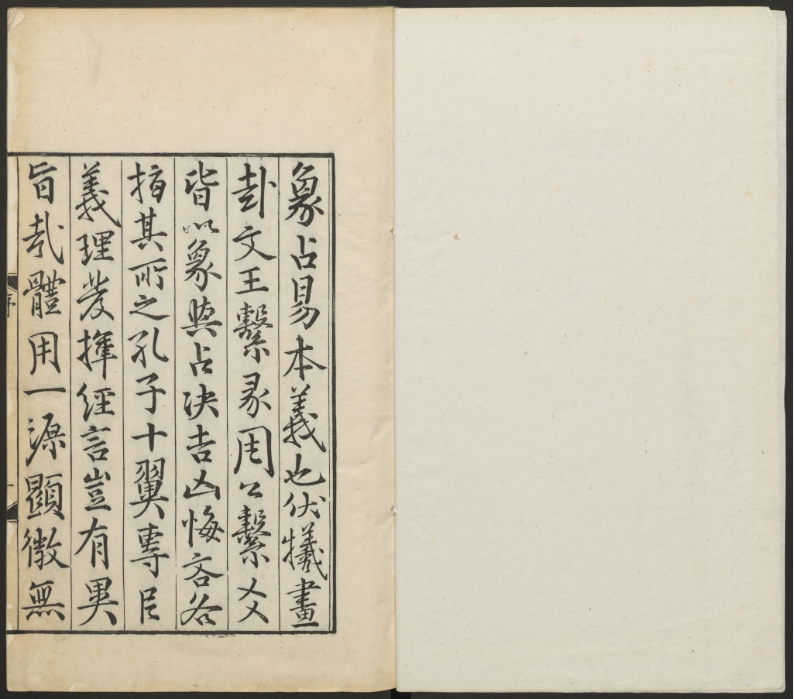 象占易本義也伏犧畫
卦文王繫彖周公繫爻
皆以象與占决吉凶悔吝各
指其所之孔子十翼專用
義理發揮經言豈有異
旨哉體用一源顯微無
序